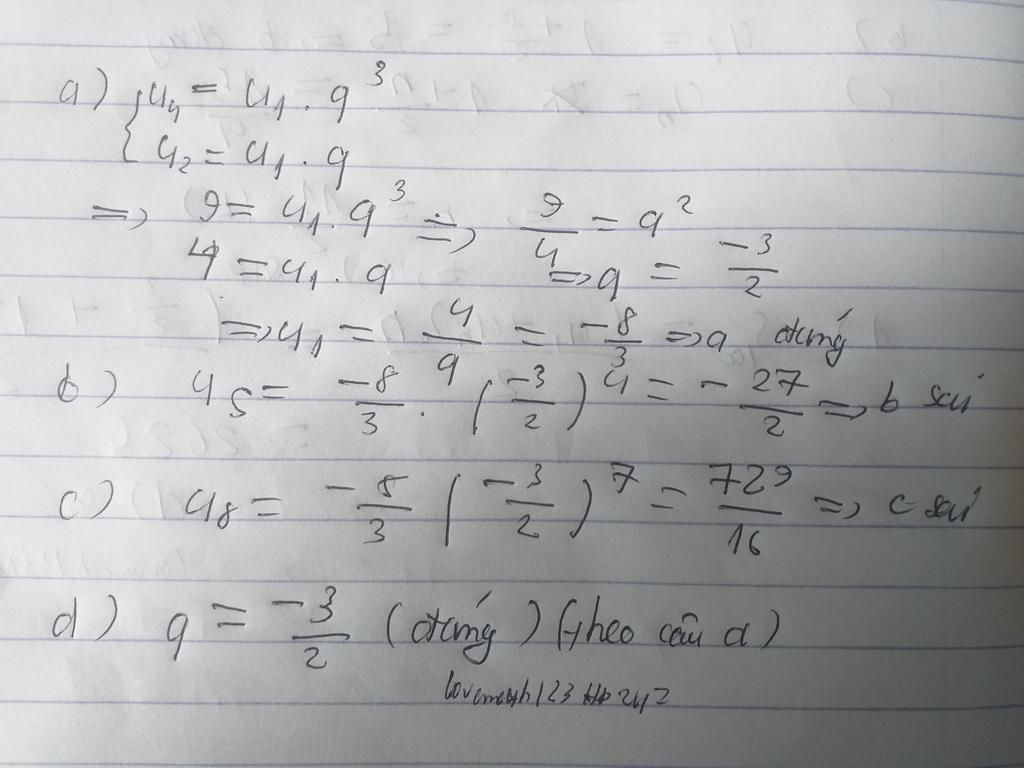 a) { u₄ = u₁ . q³
u₂ = u₁ . q
=> 9 = u₁ . q³ => 9/4 = q²
4 = u₁ . q => q = -3/2
=> u₁ = 4/q = -8/3 => a đúng
b) u₅ = -8/3 . (-3/2)⁴ = -27/2 => b sai
c) u₈ = -8/3 (-3/2)⁷ = 729/16 => c sai
d) q = -3/2 (đúng) (theo câu a)